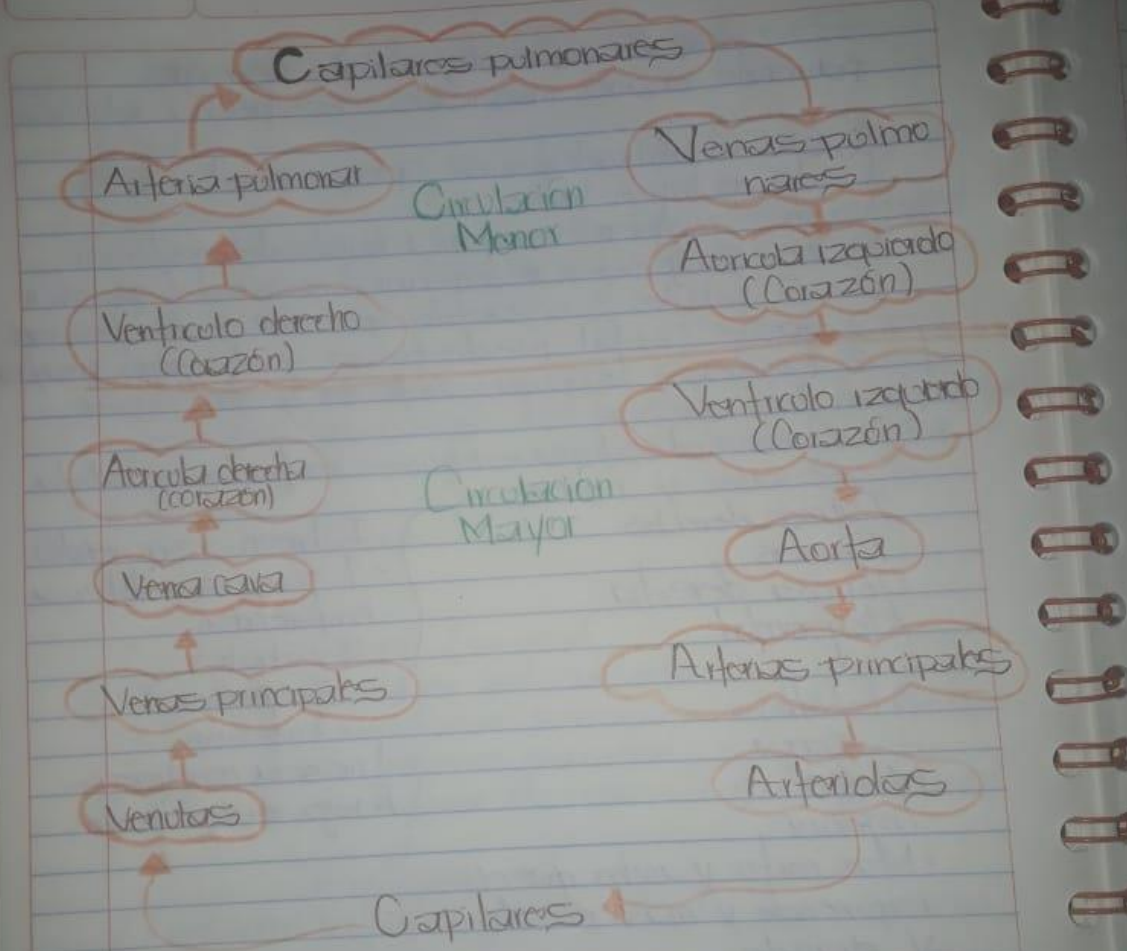 Capilares pulmonares
Arteria pulmonar
Venas pulmo
nares
Circulacion
Menor
Auricola izquierdo
(Corazón)
Ventriculo derecho
(Corazón)
Ventriculo izquierdo
(Corazón)
Auricula derecha
(corazon)
Circulacion
Mayor
Aorta
Vena cava
Arterias principales
Venas principales
Arteriolas
Venulas
Capilares